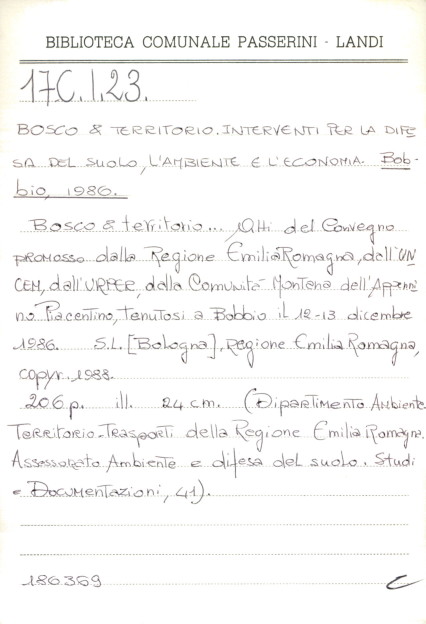 BIBLIOTECA COMUNALE PASSERINI - LANDI
17C.I.23.
BOSCO & TERRITORIO. INTERVENTI PER LA DIFE
SA DEL SUOLO, L'AMBIENTE E L'ECONOMIA. Bob-
bio, 1986.
Bosco & territorio... Atti del Convegno
promosso dalla Regione Emilia Romagna, dell'UN
CEM, dall'URPER, dalla Comunità Montana dell'Appenni
no Piacentino, tenutosi a Bobbio il 12-13 dicembre
1986. S.L. [Bologna], Regione Emilia Romagna,
copyr. 1988.
206 p. ill. 24 cm. (Dipartimento Ambiente
Territorio-Trasporti della Regione Emilia Romagna.
Assessorato Ambiente e difesa del suolo. Studi
e Documentazioni, 41).
186369 C